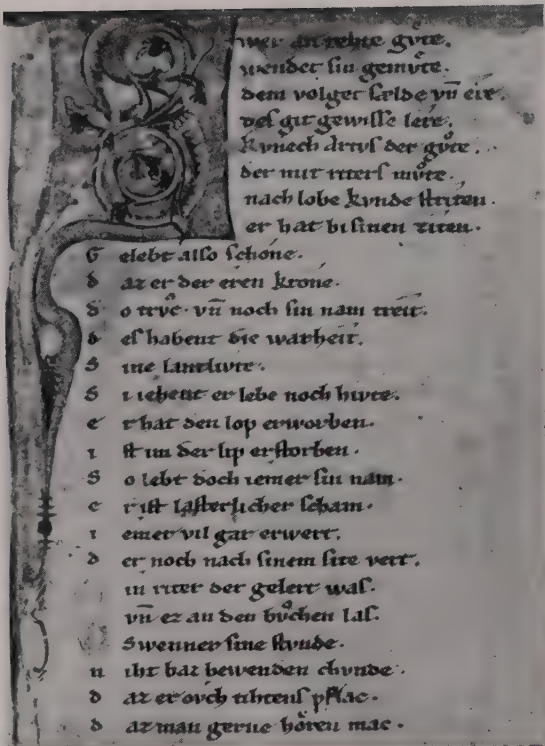 wer an rehte gvͦte.
wendet sin gemvͤte.
dem volget sælde vn̄ ere.
des git gewisse lere.
kvnech artvs der gvͦte.
der mit riters mvͦte.
nach lobe kvnde striten.
er hat bi sinen ziten.
G elebt also schone.
d az er der eren krone.
d o trvͦc. vn̄ noch sin nam treit.
d es habent die warheit.
S ine lantlivte.
S i iehent er lebe noch hivte.
e r hat den lop erworben.
i st im der lip erstorben.
S o lebt doch iemer sin nam.
e r ist lasterlicher scham.
i emer vil gar erwert.
d er noch nach sinem site vert.
in riter der gelert was.
vn̄ ez an den bvͦchen las.
Swenner sine stvnde.
n iht baz bewenden chvnde.
d az er ovch tihtens pflac.
d az man gerne hören mac.